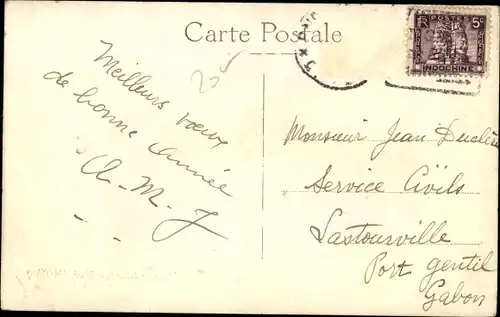 Carte Postale
POSTES
5c
INDOCHINE
Meilleurs voeux
de bonne année
Monsieur Jean
Service Civils
Lastourville
Port Gentil
Gabon